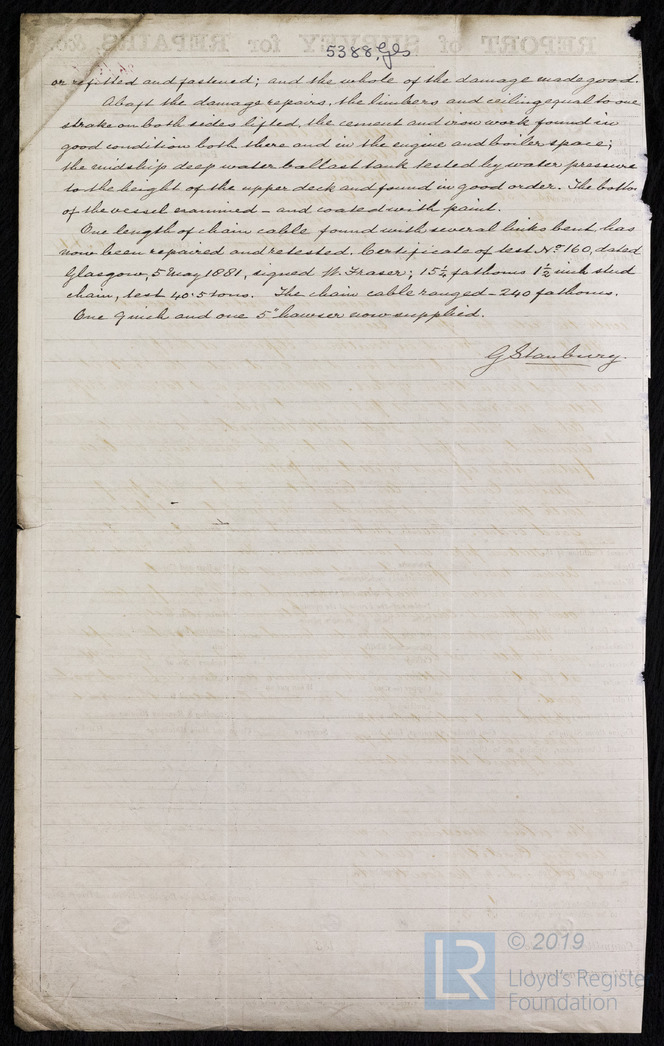 5388 Gls
or refitted and fastened; and the whole of the damage made good.
Abaft the damage repairs, the limbers and ceiling equal to one
strake on both sides lifted, the cement and iron work found in
good condition both there and in the engine and boiler space;
the midship deep water ballast tank tested by water pressure
to the height of the upper deck and found in good order. The bottom
of the vessel examined – and coated with paint.
One length of chain cable found with several links bent, has
now been repaired and retested. Certificate of test No. 160, dated
Glasgow, 5 May 1881, signed W. Fraser; 15½ fathoms 1½ inch stud
chain, test 40·5 tons. The chain cable ranged – 240 fathoms.
One 9 inch and one 5" hawser now supplied.
G Stanbury.
LR
© 2019
Lloyd's Register
Foundation